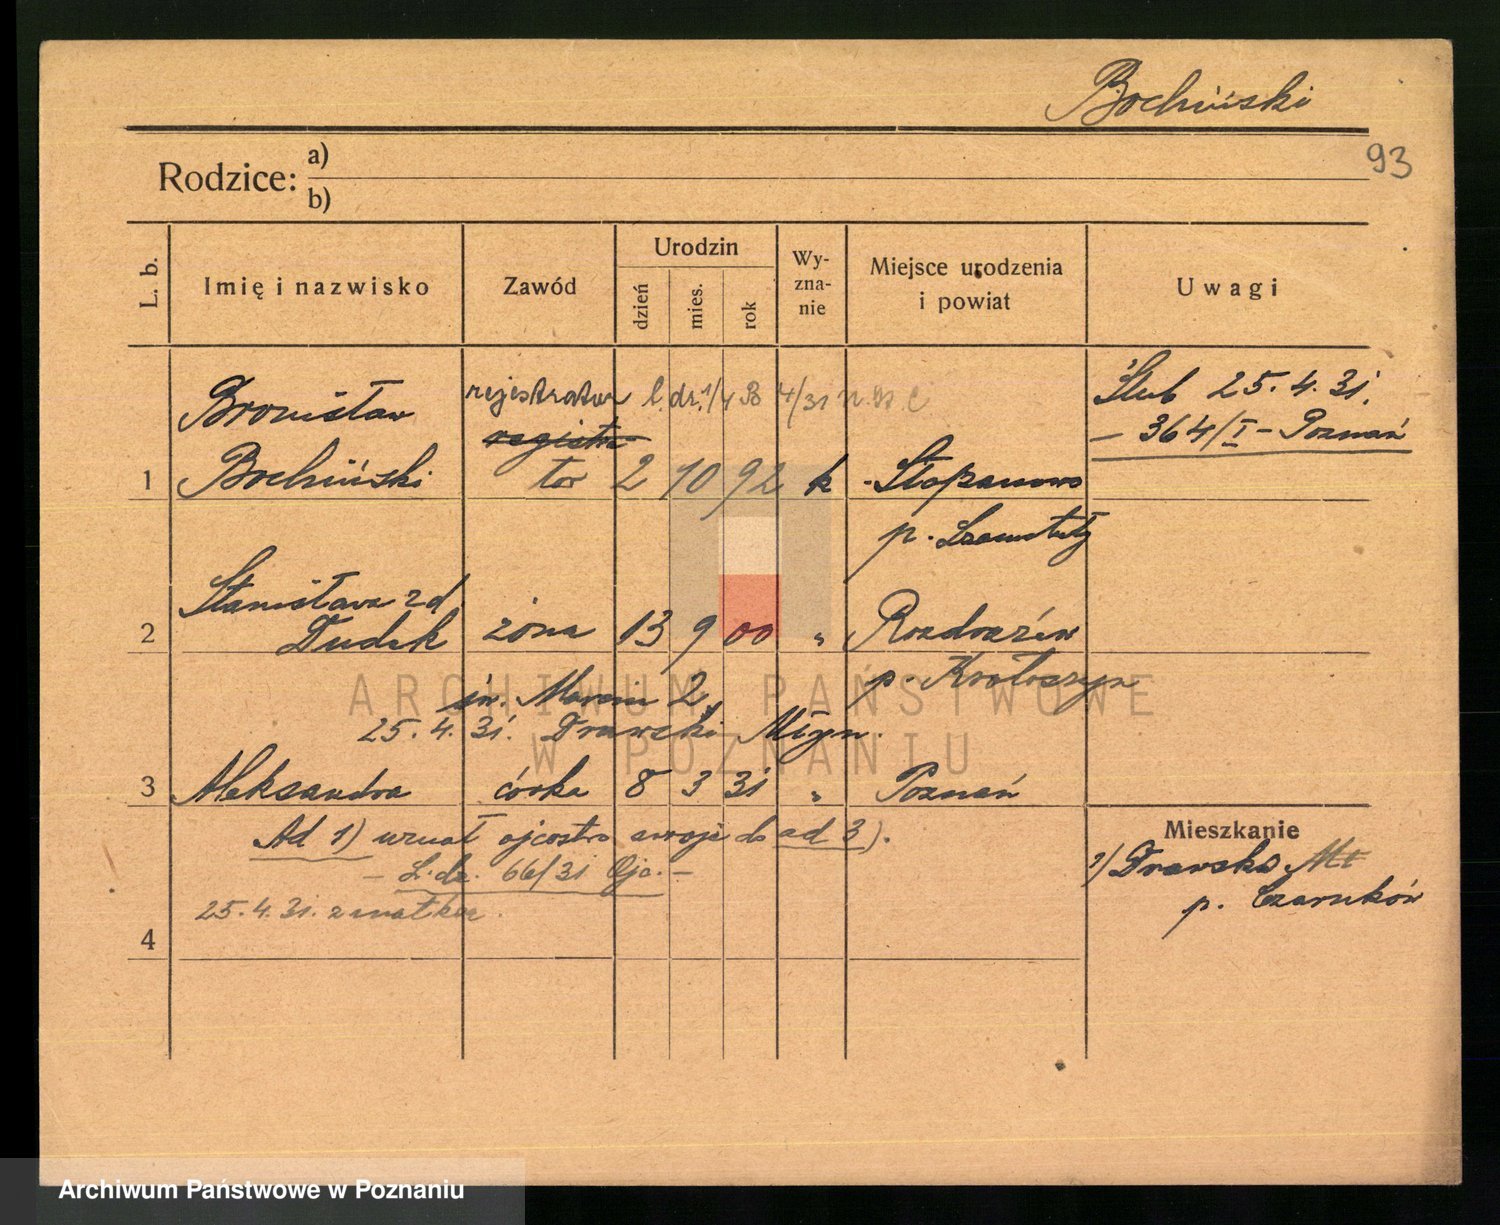 Bochiński
93
Rodzice: a)
b)
L. b.
Imię i nazwisko
Zawód
Urodzin
dzień
mies.
rok
Wy-
zna-
nie
Miejsce urodzenia
i powiat
Uwagi
Bronisław
rejestrator
Ślub 25.4.31.
registra
– 364/I – Poznań
1 Bochiński tor 2 10 92 k Stopanowo
p. Szamotuły
Stanisława z d.
2 Dudek żona 13 9 00 " Rozdrażew
p. Krotoszyn
św. Marcin 2,
25.4.31. Drawski Młyn.
3 Aleksandra córka 8 3 31 " Poznań
Ad 1) uznał ojcostwo swoje do ad 3).
– L.dz. 66/31 Ojc. –
25.4.31. z matką.
4
Mieszkanie
Drawsko Mł
p. Czarnków
ARCHIWUM PAŃSTWOWE
W POZNANIU
Archiwum Państwowe w Poznaniu